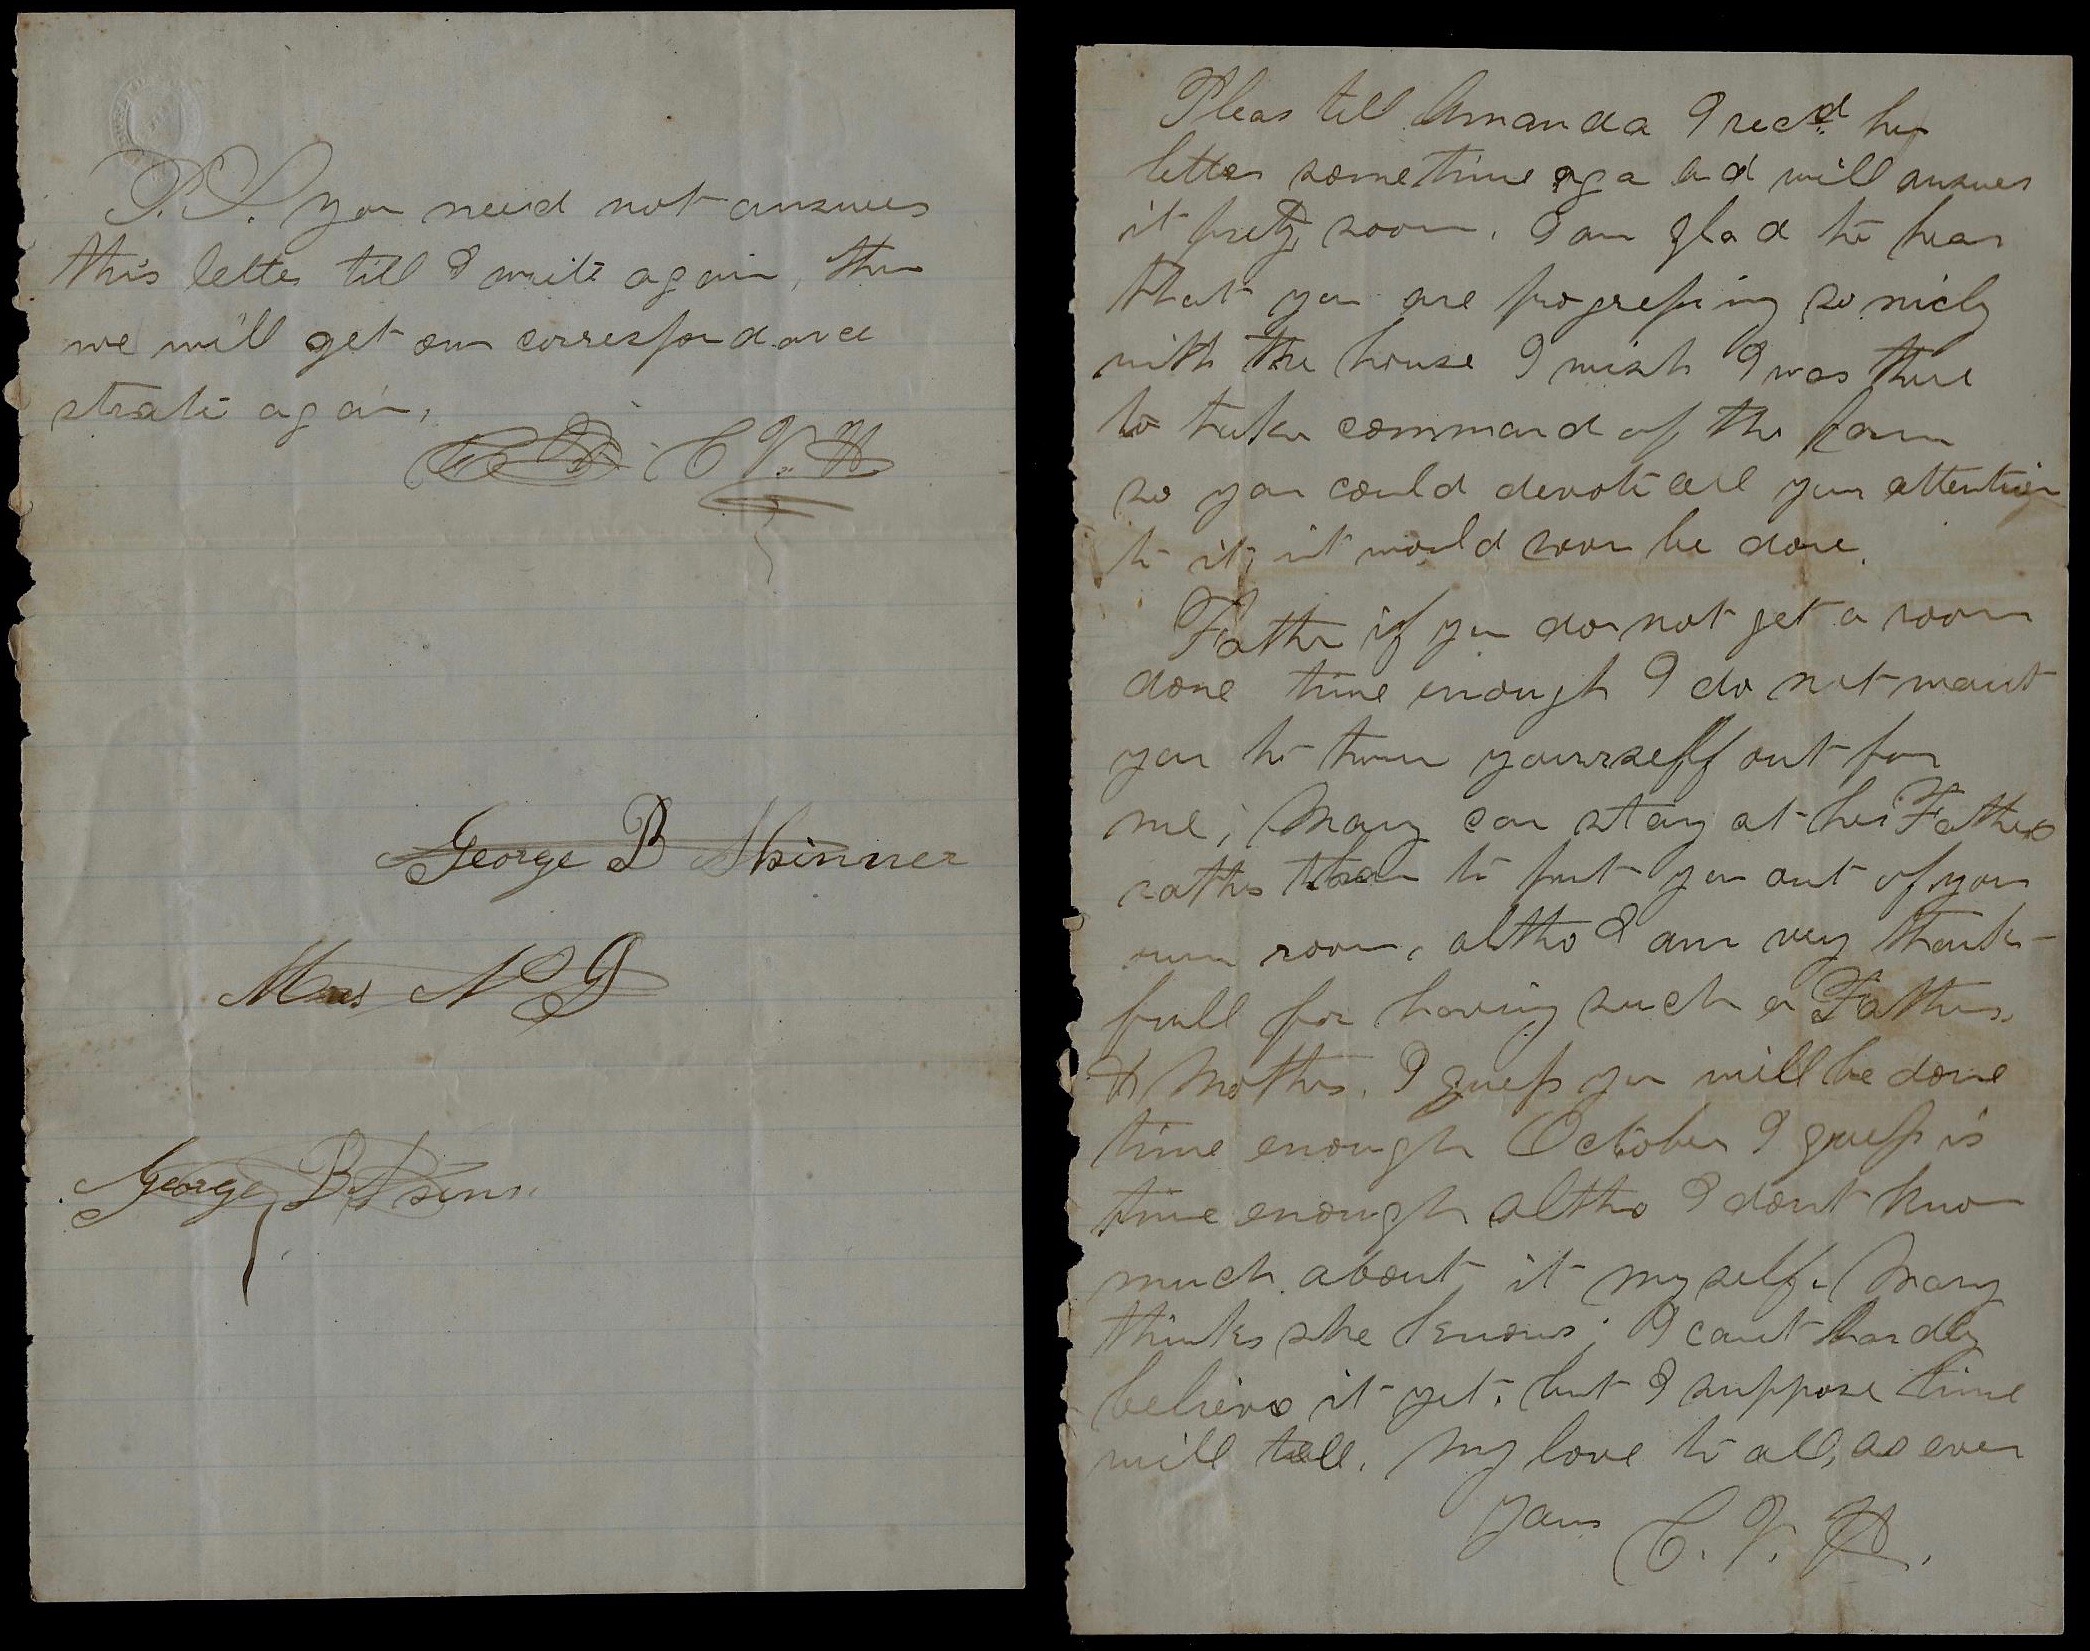 P.S. you neid not answer
this letter till I write again, then
we will get our correspondance
strate again,
C.V.H.
George B Skinner
Mrs N D
George B Skinn
Pleas tell Amanda I recd. her
letter sometime aga ad will answer
it prety soon. I am glad to hear
that you are progressing so nicly
with the house I wish I was there
to take command of the farm
so you could devote all your attention
to it, it would soon be done.
Father if you do not get a room
done time enough I do not want
you to turn yourrself out for
me, Mary can stay at her Fathers
rather than to put you out of your
own room, altho I am very thank-
full for having such a Father
& Mother. I guess you will be done
time enough October I guess is
time enough altho I dont know
much about it myself. Mary
thinks she knows; I cant hardly
believe it yet, but I suppose time
will tell. My love to all, as ever
yours C. V. H.